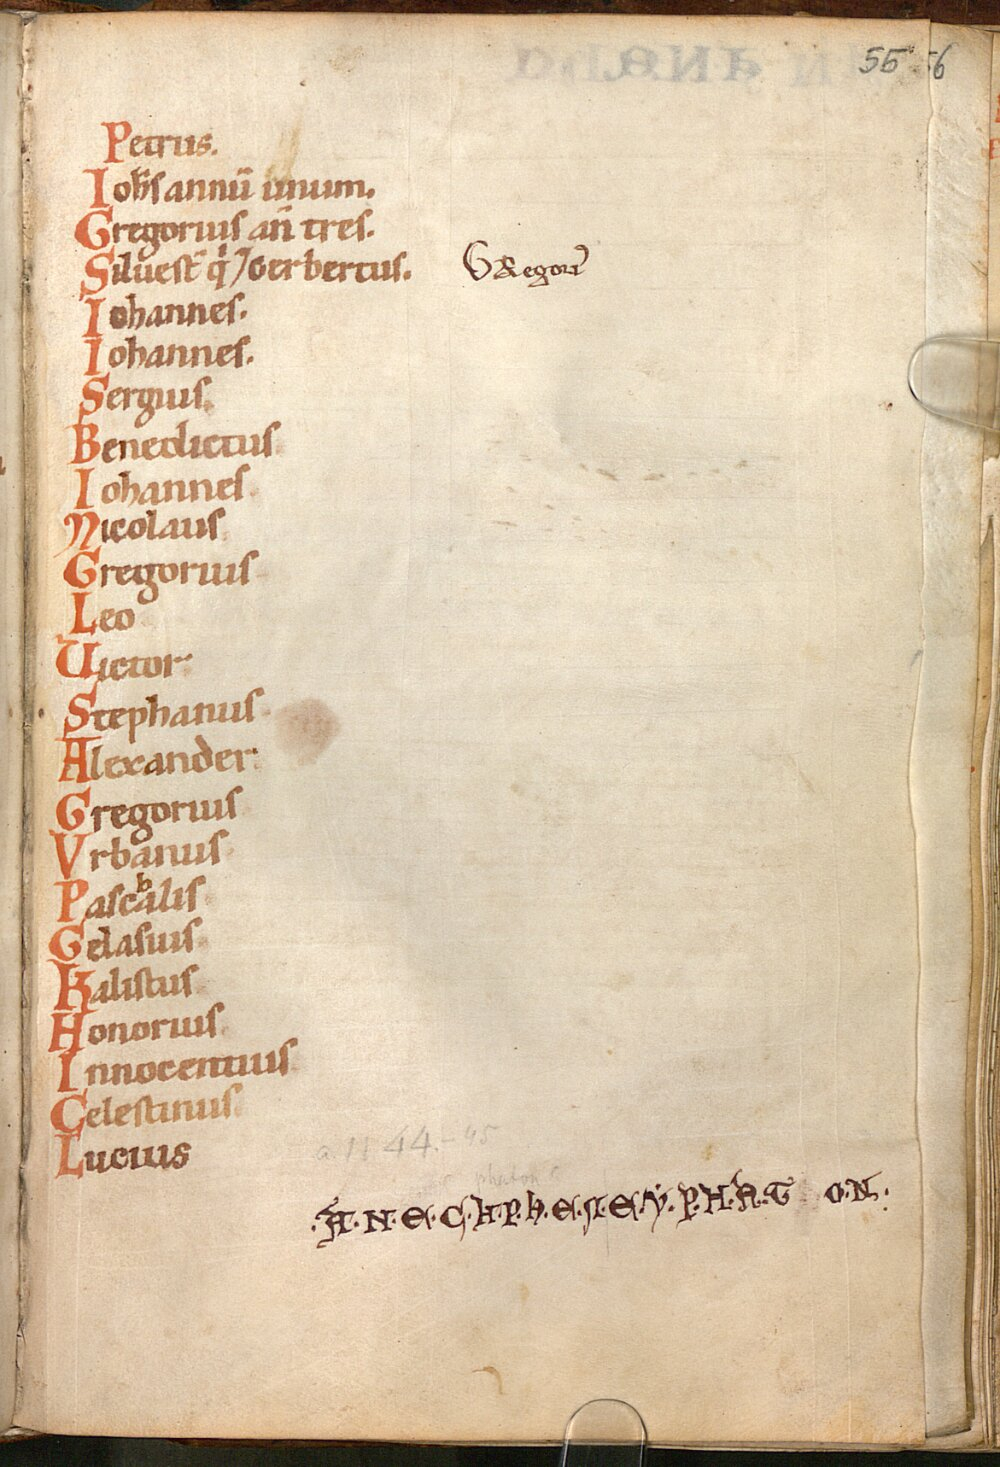 55 56
Petrus.
Ioħs annū unum.
Gregorius an̄ tres.
Siluest̄ q̄ ⁊ Gerbertus. Gregori
Iohannes.
Iohannes.
Sergius.
Benedictus
Iohannes
Nicolaus
Gregorius
Leo
Uictor
Stephanus
Alexander
Gregorius
Vrbanus
Pascalis
Gelasius
Kalistus
Honorius
Innocentius
Celestinus
Lucius
a. 1144.-45